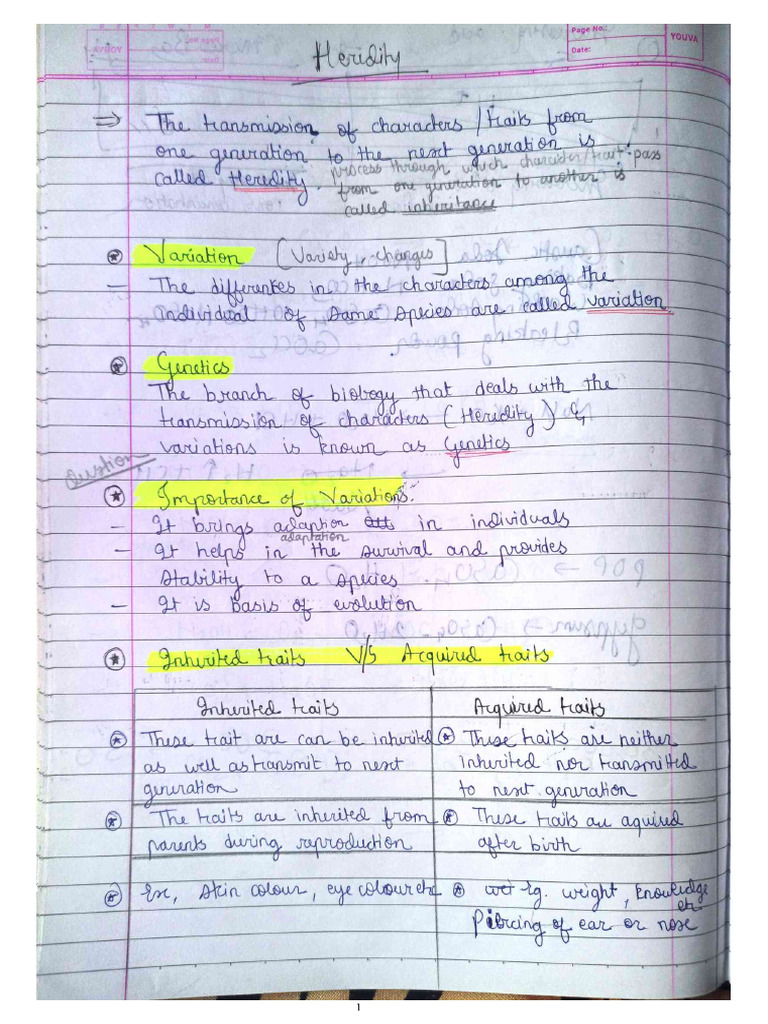 Page No.:
Date:
YOUVA
Heridity
⇒ The transmission of characters/traits from
one generation to the next generation is
called Heredity.
process through which character/trait pass
from one generation to another is
called inheritance
Variation [Variety, changes]
– The differentes in the characters among the
individual of same species are called variation
Genetics
The branch of biology that deals with the
transmission of characters (Heridity) &
variations is known as Genetics
Question
Importance of Variations:
– It brings adaption in individuals
adaptation
– It helps in the survival and provides
stability to a species
– It is Basis of evolution
Inherited traits V/S Acquired traits
Inherited traits Acquired traits
These trait are can be inherited These traits are neither
as well as transmit to next inherited nor transmitted
generation to next generation
The traits are inherited from These traits are aquired
parents during reproduction after birth
Ex, skin colour, eye colour etc eg. weight, knowledge
etc
Piercing of ear or nose
1